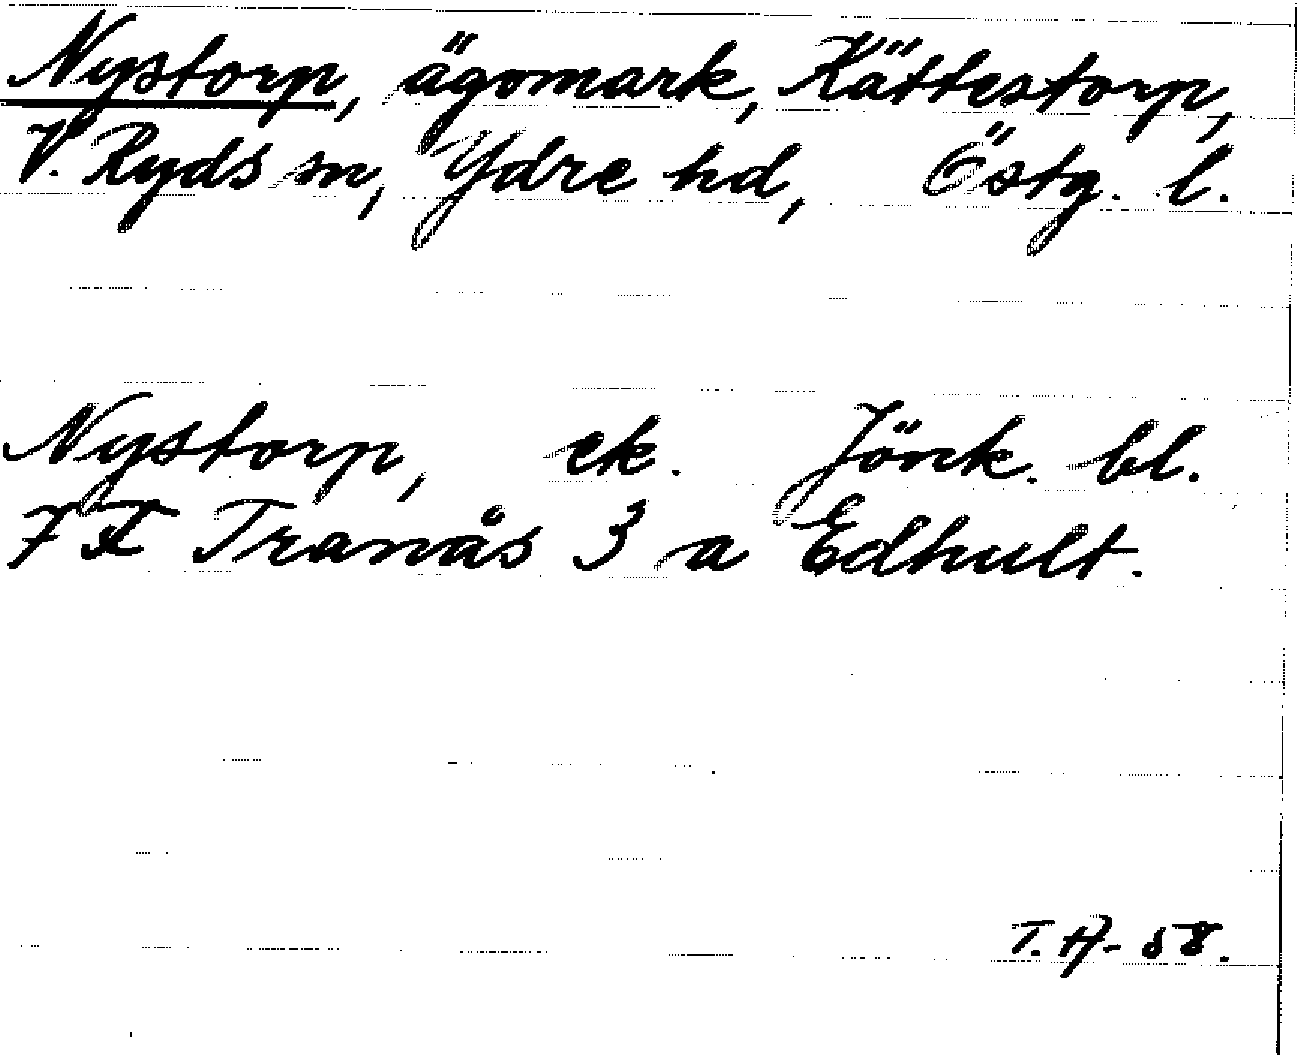 Nystorp, ägomark, Kättestorp,
V. Ryds sn, Ydre hd, Östg. l.
Nystorp, ek. Jönk. bl.
7 F Tranås 3 a Edhult.
T. A- 58.